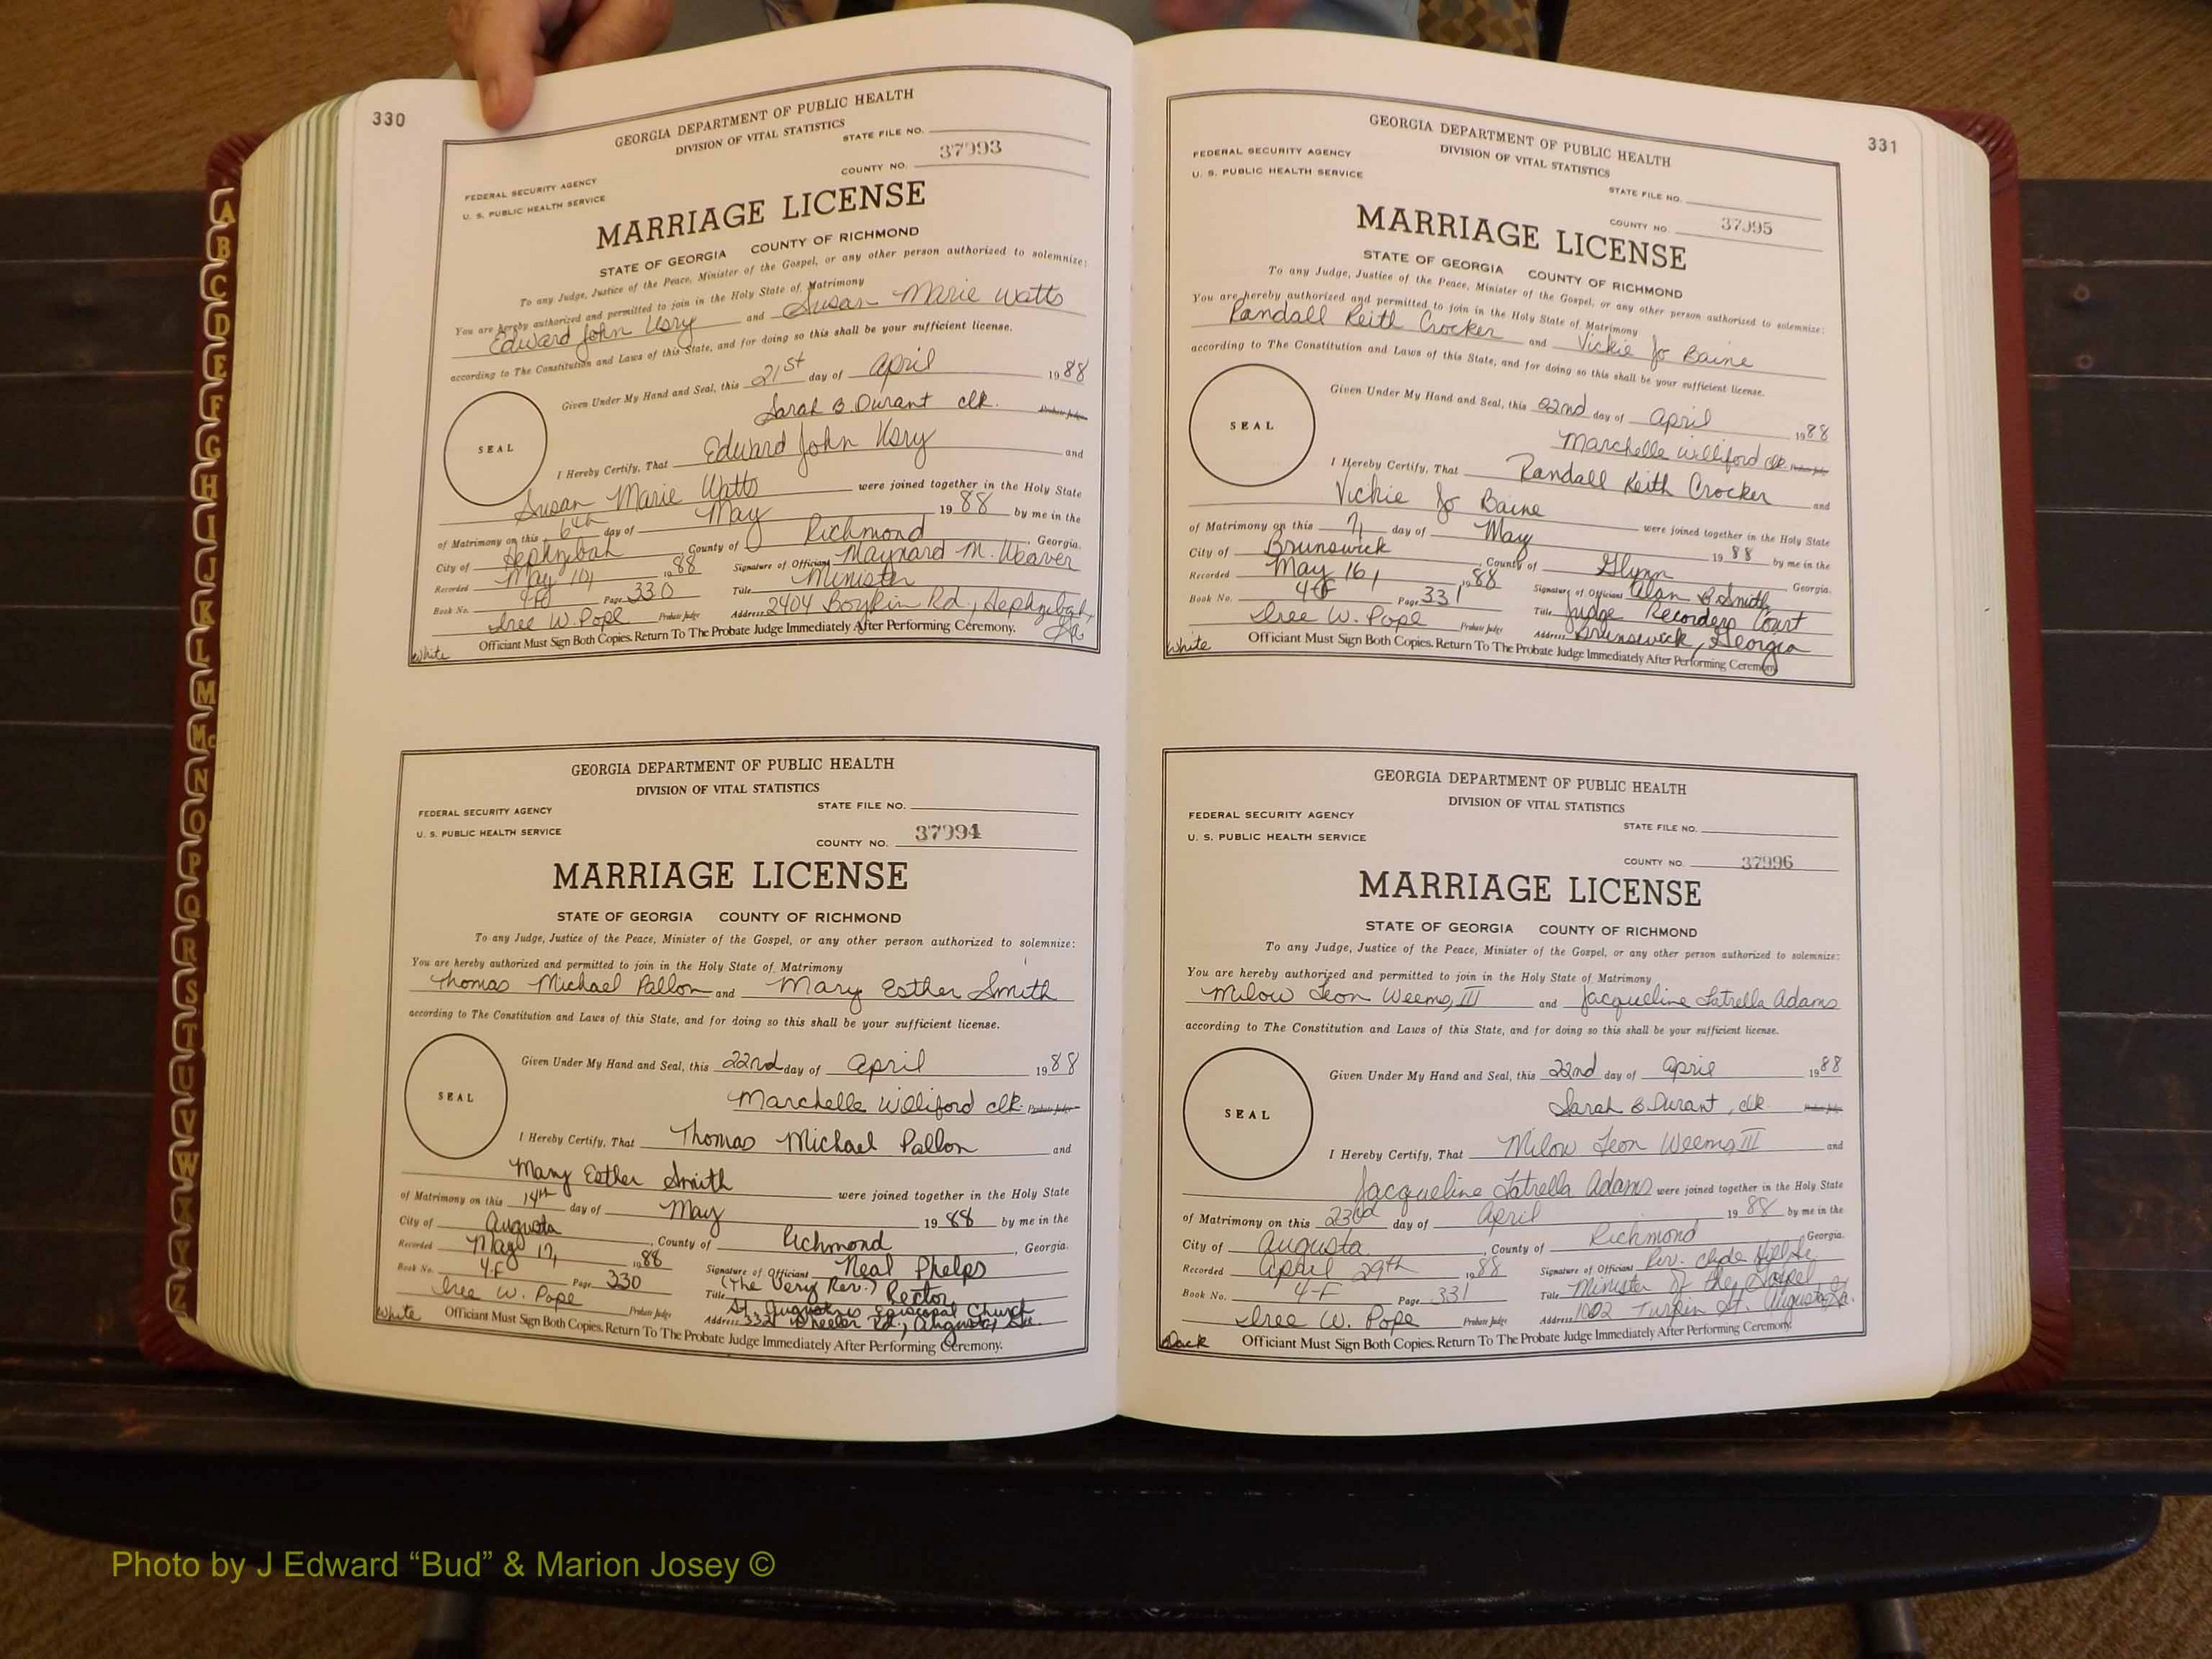 330
GEORGIA DEPARTMENT OF PUBLIC HEALTH
DIVISION OF VITAL STATISTICS
STATE FILE NO.
37993
COUNTY NO.
FEDERAL SECURITY AGENCY
U. S. PUBLIC HEALTH SERVICE
MARRIAGE LICENSE
STATE OF GEORGIA COUNTY OF RICHMOND
To any Judge, Justice of the Peace, Minister of the Gospel, or any other person authorized to solemnize:
You are hereby authorized and permitted to join in the Holy State of Matrimony
Edward John and Susan Marie Watts
according to The Constitution and Laws of this State, and for doing so this shall be your sufficient license.
Given Under My Hand and Seal, this 21st day of April 1988
Sarah B. Durant clk. Probate Judge
SEAL
I Hereby Certify, That Edward John and
Susan Marie Watts were joined together in the Holy State
of Matrimony on this 6th day of May 1988 by me in the
City of Hephzibah, County of Richmond, Georgia.
Recorded May 10, 1988 Signature of Officiant Maynard M. Weaver
Book No. Page 330 Title Minister
Iree W. Pope Probate Judge Address 2404 Boykin Rd., Hephzibah, Ga.
Officiant Must Sign Both Copies. Return To The Probate Judge Immediately After Performing Ceremony.
White
GEORGIA DEPARTMENT OF PUBLIC HEALTH
DIVISION OF VITAL STATISTICS
STATE FILE NO.
FEDERAL SECURITY AGENCY
U. S. PUBLIC HEALTH SERVICE
COUNTY NO. 37994
MARRIAGE LICENSE
STATE OF GEORGIA COUNTY OF RICHMOND
To any Judge, Justice of the Peace, Minister of the Gospel, or any other person authorized to solemnize:
You are hereby authorized and permitted to join in the Holy State of Matrimony
Thomas Michael Pallon and Mary Esther Smith
according to The Constitution and Laws of this State, and for doing so this shall be your sufficient license.
Given Under My Hand and Seal, this 22nd day of April 1988
Marchelle Williford clk. Probate Judge
SEAL
I Hereby Certify, That Thomas Michael Pallon and
Mary Esther Smith were joined together in the Holy State
of Matrimony on this 14th day of May 1988 by me in the
City of Augusta, County of Richmond, Georgia.
Recorded May 17, 1988 Signature of Officiant Neal Phelps
Book No. 4-F Page 330 Title (The Very Rev.) Rector
Iree W. Pope Probate Judge St. Augustine's Episcopal Church
Address Wheeler Rd., Augusta, Ga.
Officiant Must Sign Both Copies. Return To The Probate Judge Immediately After Performing Ceremony.
White
331
GEORGIA DEPARTMENT OF PUBLIC HEALTH
DIVISION OF VITAL STATISTICS
FEDERAL SECURITY AGENCY
U. S. PUBLIC HEALTH SERVICE
STATE FILE NO.
COUNTY NO. 37995
MARRIAGE LICENSE
STATE OF GEORGIA COUNTY OF RICHMOND
To any Judge, Justice of the Peace, Minister of the Gospel, or any other person authorized to solemnize:
You are hereby authorized and permitted to join in the Holy State of Matrimony
Randall Keith Crocker and Vickie Jo Baine
according to The Constitution and Laws of this State, and for doing so this shall be your sufficient license.
Given Under My Hand and Seal, this 22nd day of April 1988
Marchelle Williford clk. Probate Judge
SEAL
I Hereby Certify, That Randall Keith Crocker and
Vickie Jo Baine were joined together in the Holy State
of Matrimony on this 7, day of May 1988 by me in the
City of Brunswick, County of Glynn Georgia.
Recorded May 16, 1988 Signature of Officiant Alan B. Smith
Book No. 4F Page 331 Title Judge Recorders Court
Iree W. Pope Probate Judge Address Brunswick, Georgia
Officiant Must Sign Both Copies. Return To The Probate Judge Immediately After Performing Ceremony.
White
GEORGIA DEPARTMENT OF PUBLIC HEALTH
DIVISION OF VITAL STATISTICS
FEDERAL SECURITY AGENCY
STATE FILE NO.
U. S. PUBLIC HEALTH SERVICE
COUNTY NO. 37996
MARRIAGE LICENSE
STATE OF GEORGIA COUNTY OF RICHMOND
To any Judge, Justice of the Peace, Minister of the Gospel, or any other person authorized to solemnize:
You are hereby authorized and permitted to join in the Holy State of Matrimony
Milow Leon Weems, III and Jacqueline Latrella Adams
according to The Constitution and Laws of this State, and for doing so this shall be your sufficient license.
Given Under My Hand and Seal, this 22nd day of April 1988
Sarah B. Durant, clk. Probate Judge
SEAL
I Hereby Certify, That Milow Leon Weems, III and
Jacqueline Latrella Adams were joined together in the Holy State
of Matrimony on this 23rd day of April 1988 by me in the
City of Augusta, County of Richmond Georgia.
Recorded April 29th 1988 Signature of Officiant Rev. Clyde
Book No. 4-F Page 331 Title Minister of the Gospel
Iree W. Pope Probate Judge Address 1102 Turpin St. Augusta, Ga.
Officiant Must Sign Both Copies. Return To The Probate Judge Immediately After Performing Ceremony.
A
B
C
D
E
F
G
H
I
J
K
L
M
Mc
N
O
P
Q
R
S
T
U
V
W
X
Y
Z
Photo by J Edward “Bud” & Marion Josey ©